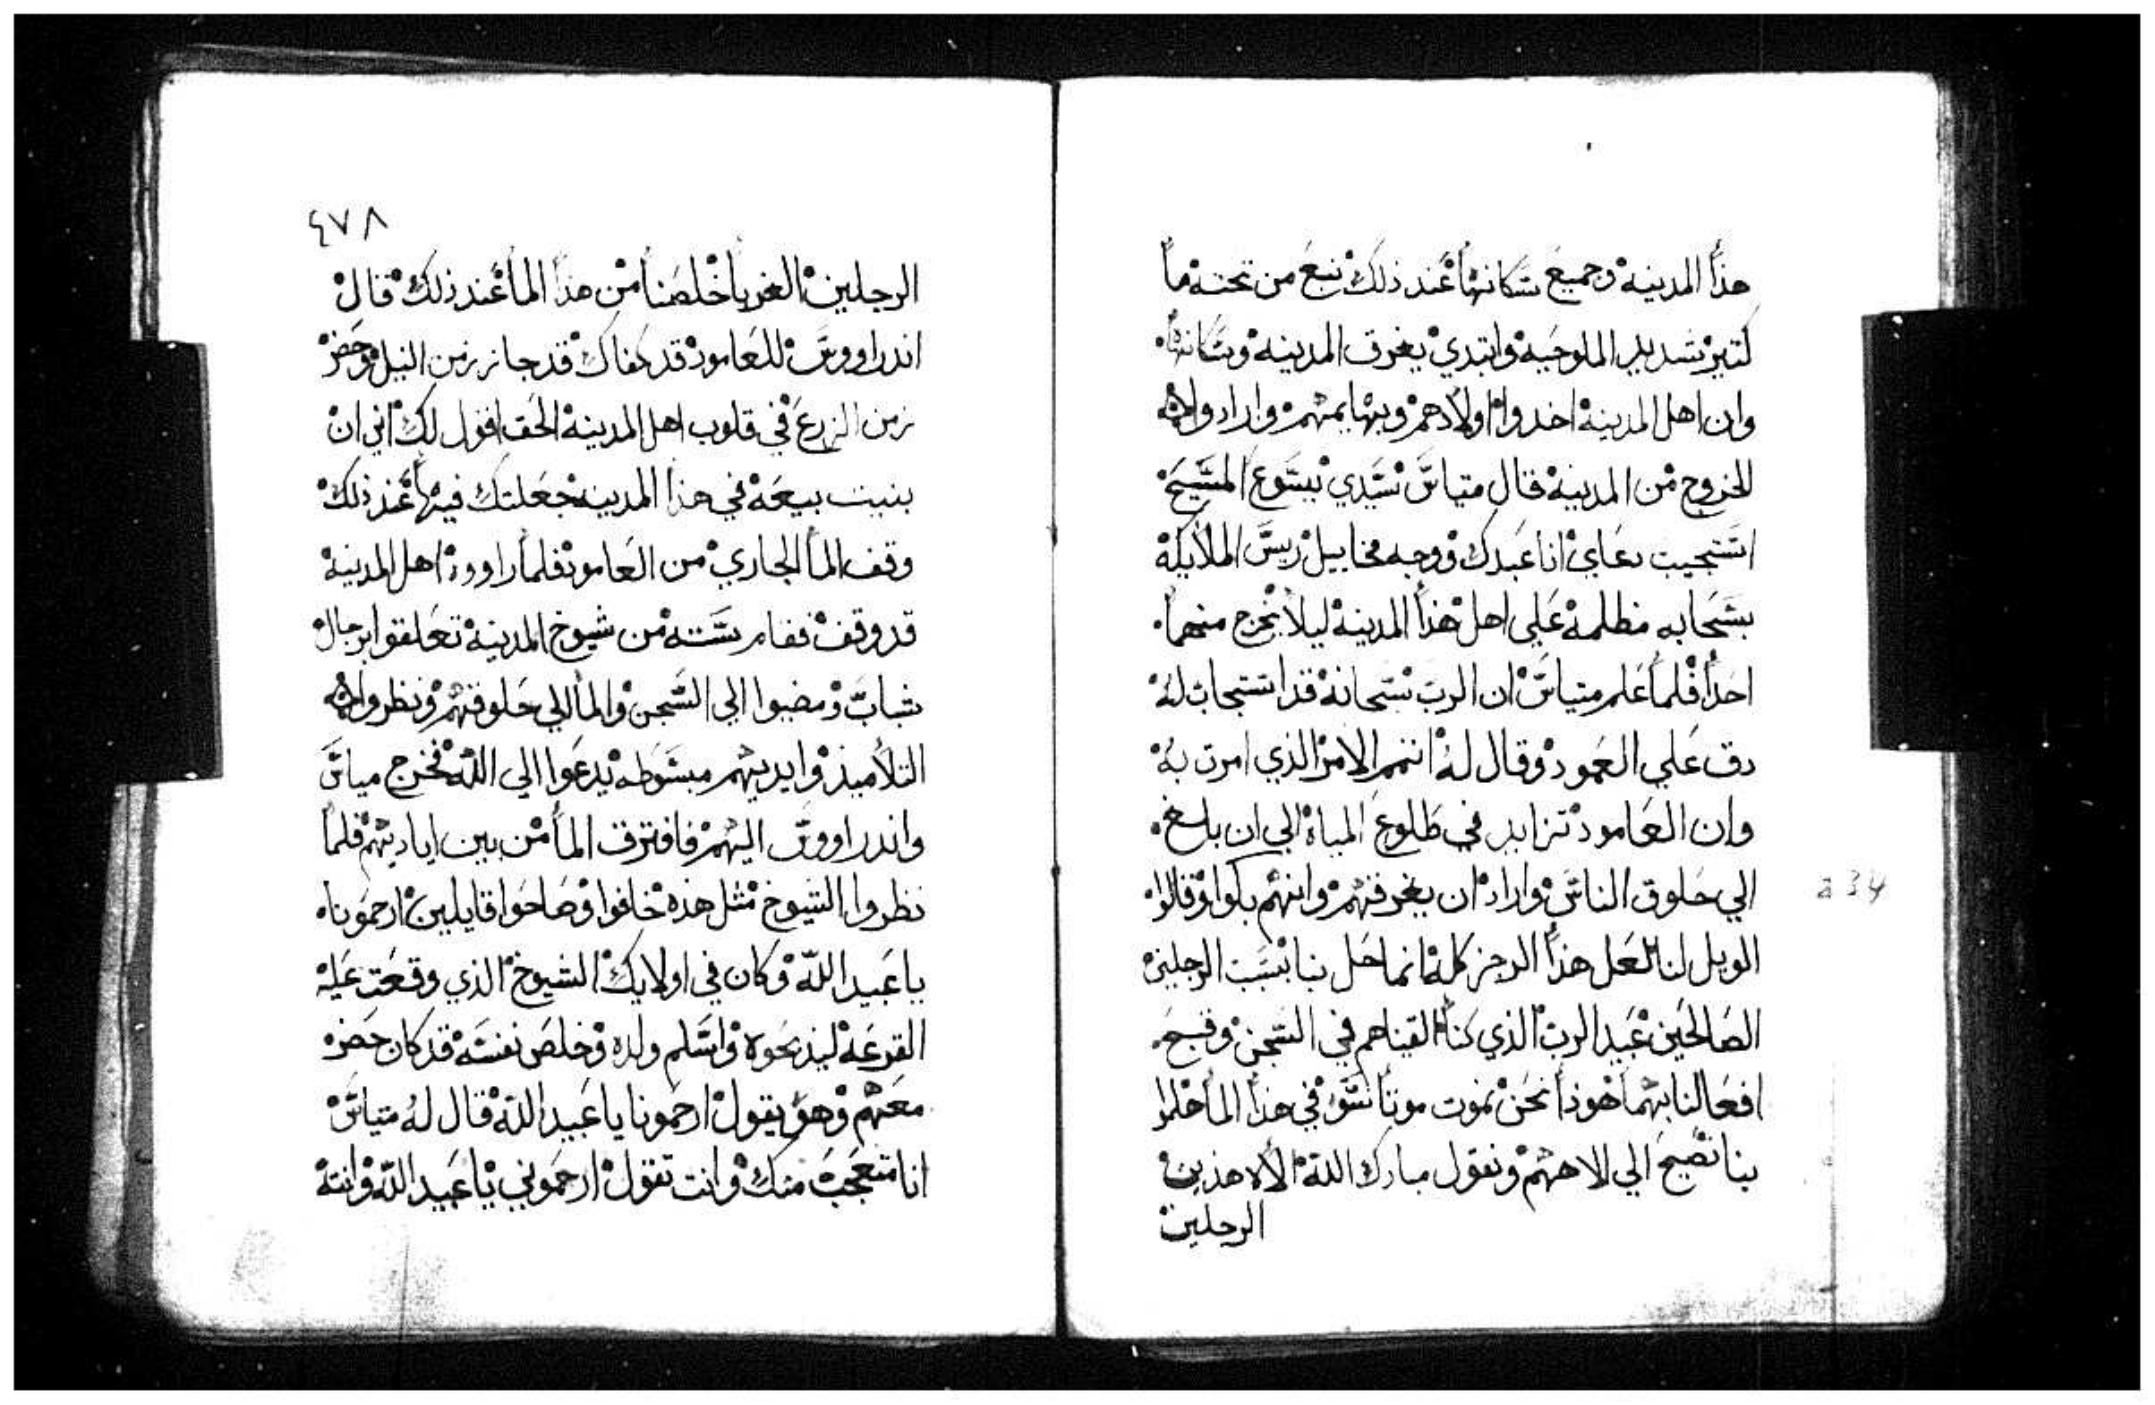 هذا المدينه وجميع سكانها عند ذلك نبع من تحته ما
كتير شديد الملوحيه وابتدي يغرق المدينه وسكانها
وان اهل المدينه اخدوا اولادهم وبهايمهم وارادوا
للخروج من المدينه قال متياس سيدي يسوع المسيح
استجيب دعاي انا عبدك ووجه مخاييل ريس الملايكة
بسحابه مظلمه علي اهل هذا المدينه ليلا يخرج منهما
احدا فلما علم متياس ان الرب سبحانه قد استجاب له
دق علي العمود وقال له انتمر الامر الذي امرت به
وان العامود تزايد في طلوع المياه الي ان بلغ
الي حلوق الناس واراد ان يغرقهم وانهم بكوا وقالوا
الويل لنا لعل هذا الرجز كله انما حل بنا بسبب الرجلين
الصالحين عبيد الرب الذي كنا القيناهم في السجن وقبح
افعالنا بهما هوذا نحن نموت موتا سو في هذا الما هلموا
بنا نصيح الي الاههم ونقول مبارك الله الاه هذين
الرجلين
٤٧٨
الرجلين الغربا خلصنا من هذا الما عند ذلك قال
اندراووس للعامود قد كفاك قد جاز زمن النيل وحضر
زمن الزرع في قلوب اهل المدينه الحق اقول لك اني ان
بنيت بيعه في هذا المدينه جعلتك فيها عند ذلك
وقف الما الجاري من العامود فلما راووه اهل المدينه
قد وقف فقام سته من شيوخ المدينه تعلقوا برجال
شباب ومضيوا الي السجن والما الي حلوقهم ونظروا
التلاميذ وايديهم مبسوطه يدعوا الي الله فخرج مياس
واندراووس اليهم فافترق الما من بين اياديهم فلما
نظروا الشيوخ مثل هذه خافوا وصاحوا قايلين ارحمونا
يا عبيد الله وكان في اولايك الشيوخ الذي وقعت عليه
القرعه ليذبحوه واسلم ولده وخلص نفسه قد كان حضر
معهم وهو يقول ارحمونا يا عبيد الله قال له متياس
انا متعجب منك وانت تقول ارحموني يا عبيد الله وانته